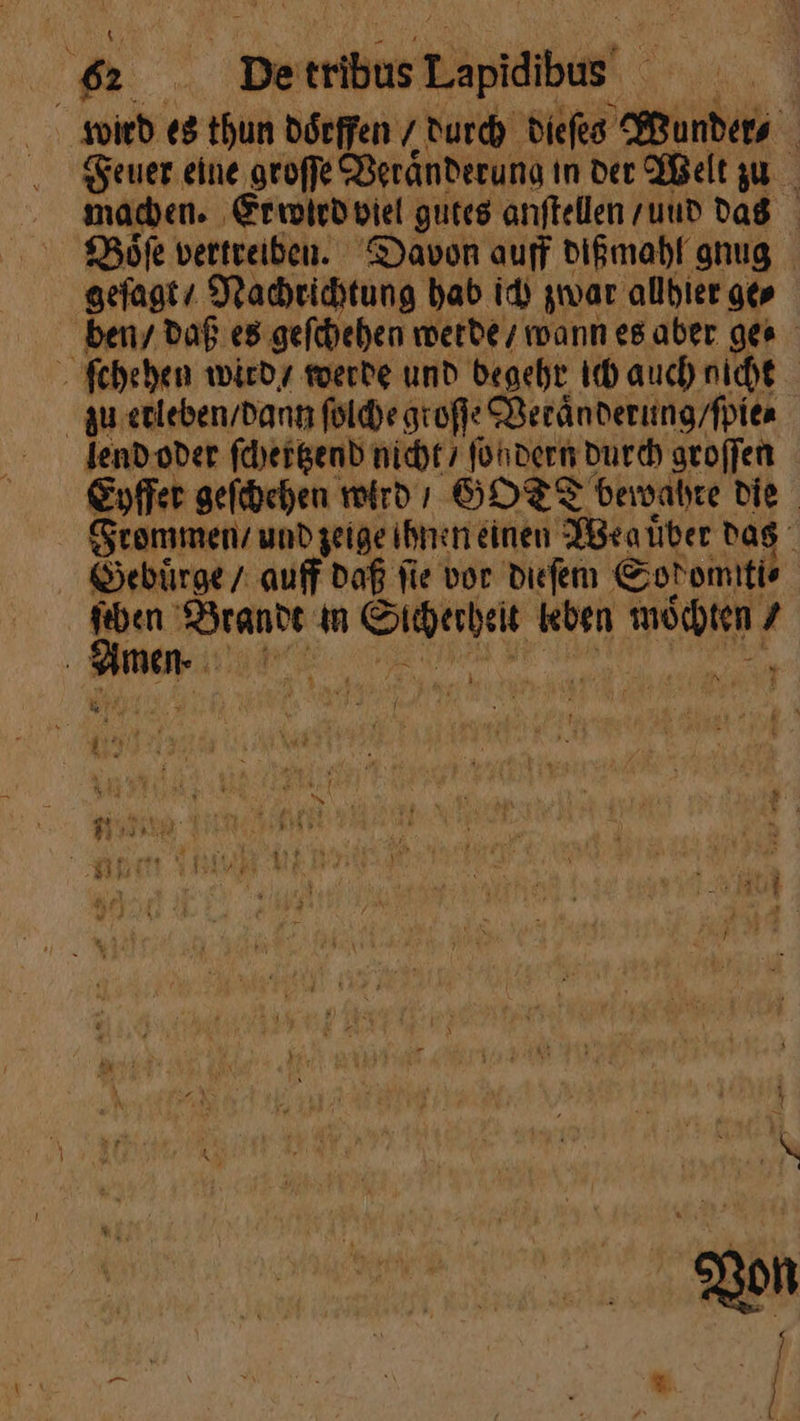 62 De tribus Lapidibus
wird es thun doͤrffen / durch dieſes Wunder⸗
Feuer eine groſſe Veraͤnderung in der Welt zu
machen. Er wird viel gutes anſtellen / uud das
Boͤſe vertreiben. Davon auff dißmahl gnug
geſagt / Nachrichtung hab ich zwar allhier ge⸗
ben / daß es geſchehen werde / wann es aber ge⸗
ſchehen wird / werde und begehr ich auch nicht
zu erleben / dann ſolche groſſe Veraͤnderung / ſpie⸗
lend oder ſchertzend nicht / ſondern durch groſſen
Eyffer geſchehen wird / GOTT bewahre die
Frommen / und zeige ihnen einen Weg uͤber das
Gebuͤrge / auff daß ſie vor dieſem Sodomiti⸗
ſchen Brandt in Sicherheit leben moͤchten /
Amen.
Von